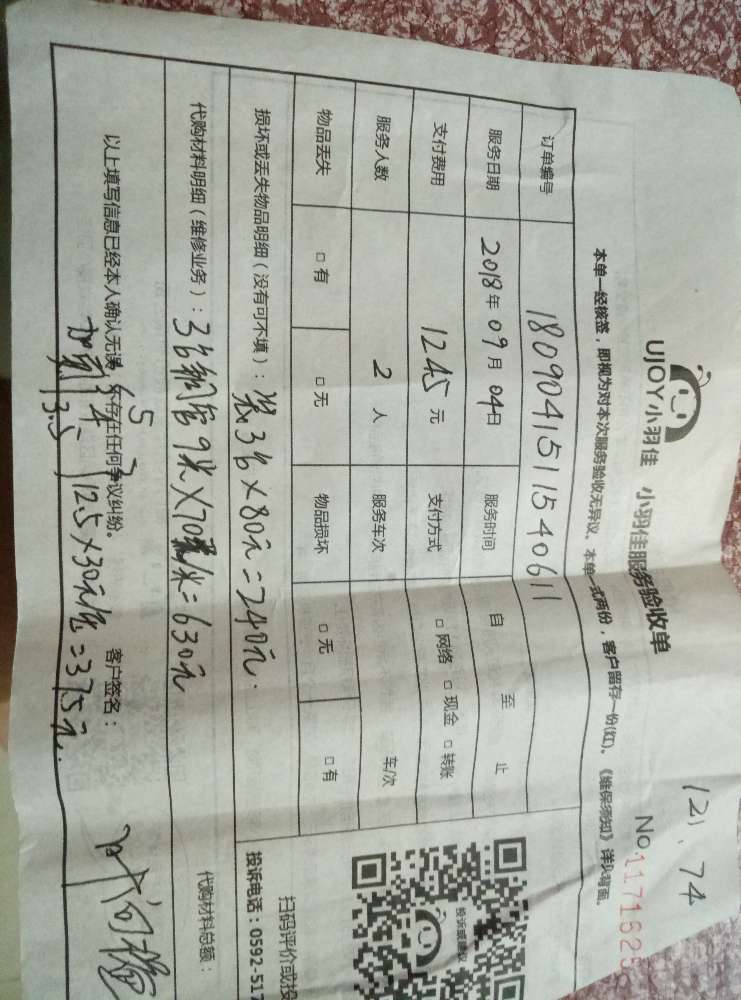 121.74
UJOY小羽佳 小羽佳服务验收单
No.1171625
本单一经核签，即视为对本次服务验收无异议、本单一式两份，客户留存一份(红)。《维保须知》详见背面。
订单编号 180904151154061 1
服务日期 2018年09月04日 服务时间 自 至 止
支付费用 1245元 支付方式 □网络 □现金 □转账
服务人数 2人 服务车次 车/次
物品丢失 □有 □无 物品损坏 □无 □有
损坏或丢失物品明细（没有可不填）： 装3台×80元=240元.
代购材料明细（维修业务）： 3台铜管9米×70元/米=630元
代购材料总额：
以上填写信息已经本人确认无误，不存在任何争议纠纷。 客户签名：
加氟 5 4 3.5 12.5×30元/ =375元.
扫码评价或投
投诉电话：0592-517